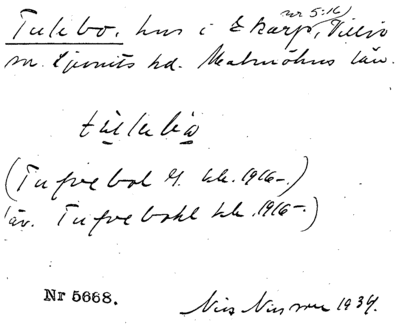 nr 5:16)
Tulebo. hus i Ekarp, Villie
sn. Ljunits hd. Malmöhus län.
tulebo
(Tufvebol hk. 1916-.)
äv. Tufvebohl hk. 1916-.)
Nr 5668.
Nils Nilsson 1934.